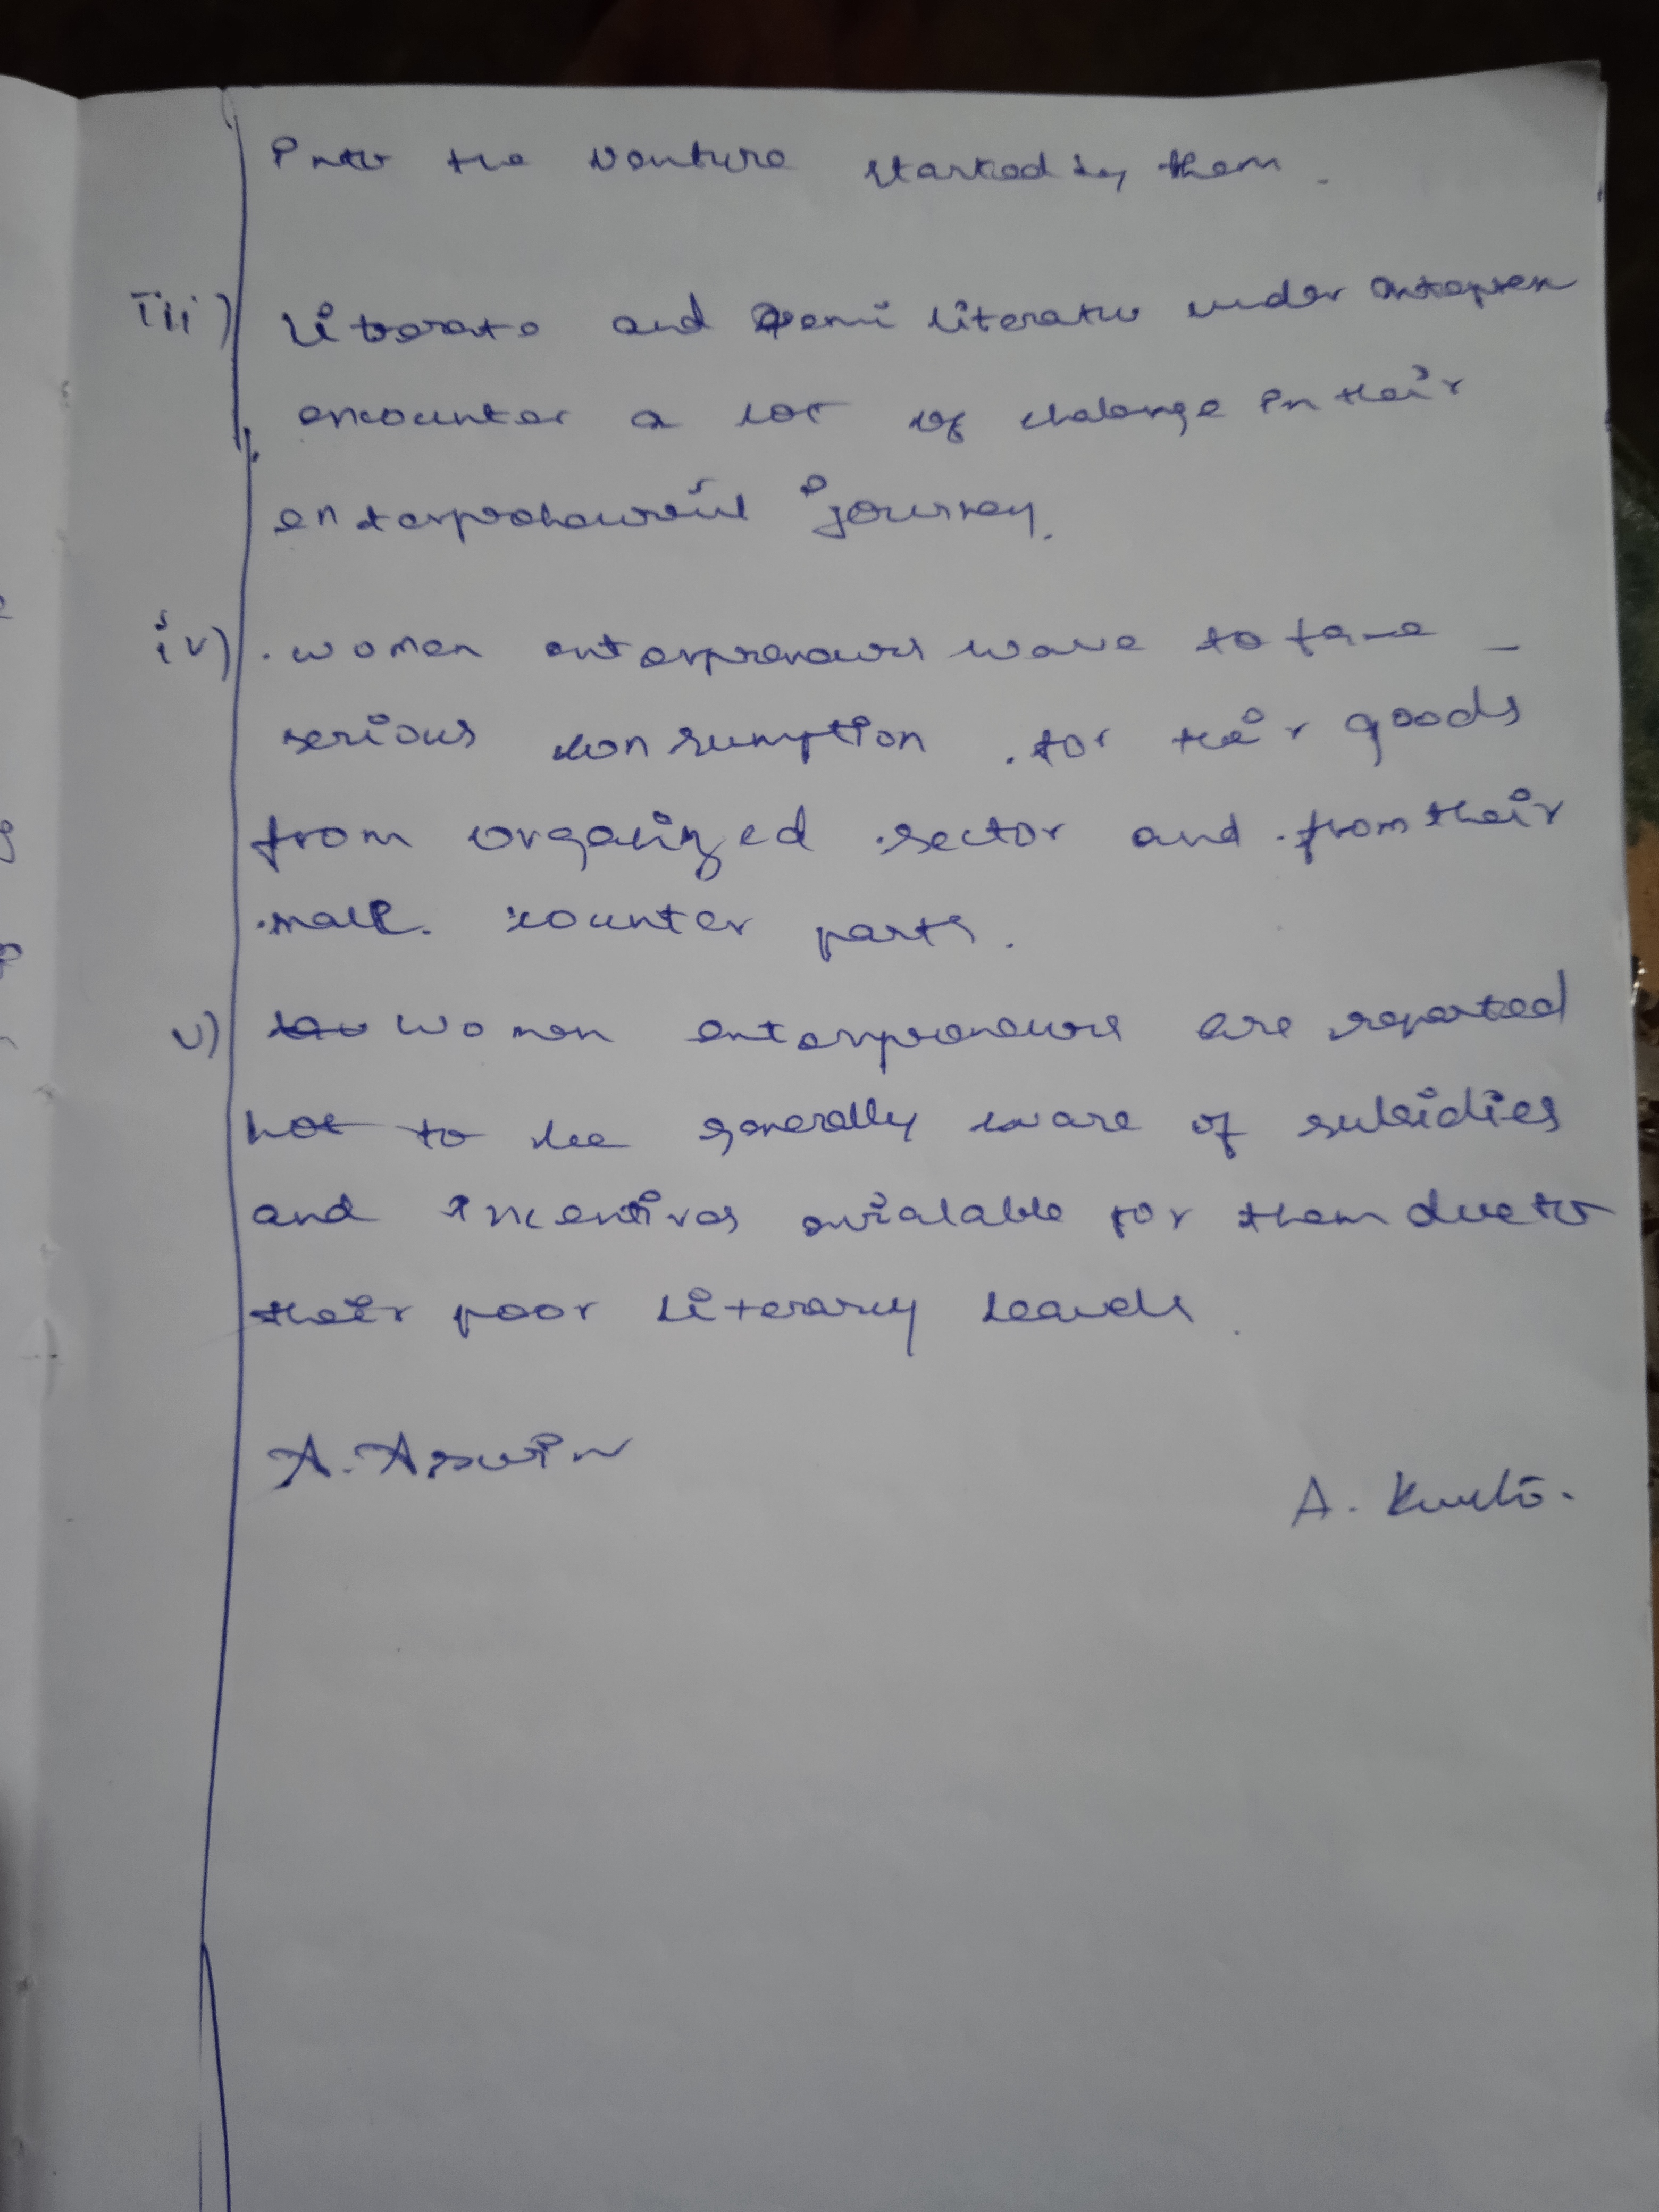 Into the venture started by them.
iii) Literate and semi literate under enterpren
encounter a lot of chalenge in their
enterpreneurial journey.
iv) women enterpreneurs have to face
serious consumption for their goods
from organized sector and from their
male counter parts.
v) women enterpreneurs are reported
not to be generally aware of subsidies
and Incentives avialable for them due to
their poor literary levels.
A. Aswin
A.